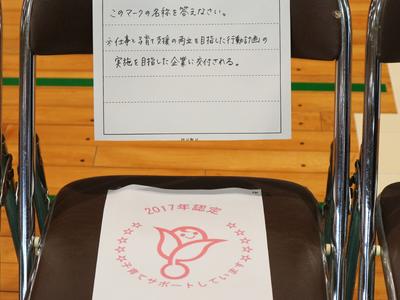 このマークの名称を答えなさい。
※仕事と子育て支援の両立を目指した行動計画の
実施を目指した企業に交付される。
2017年認定
☆☆☆☆☆子育てサポートしています☆☆☆☆☆